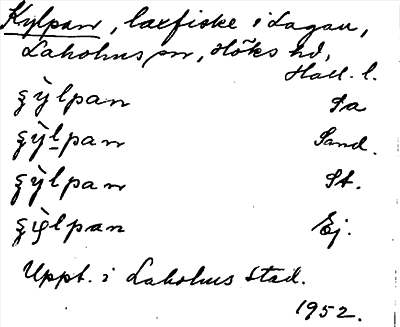 Kylpan, laxfiske i Lagan,
Laholms sn, Höks hd,
Hall. l.
ȿỳlpan Sa
ȿỳl̲pan Sand.
ȿỳlpan St.
lpan Ej.
Uppt. i Laholms stad.
1952.